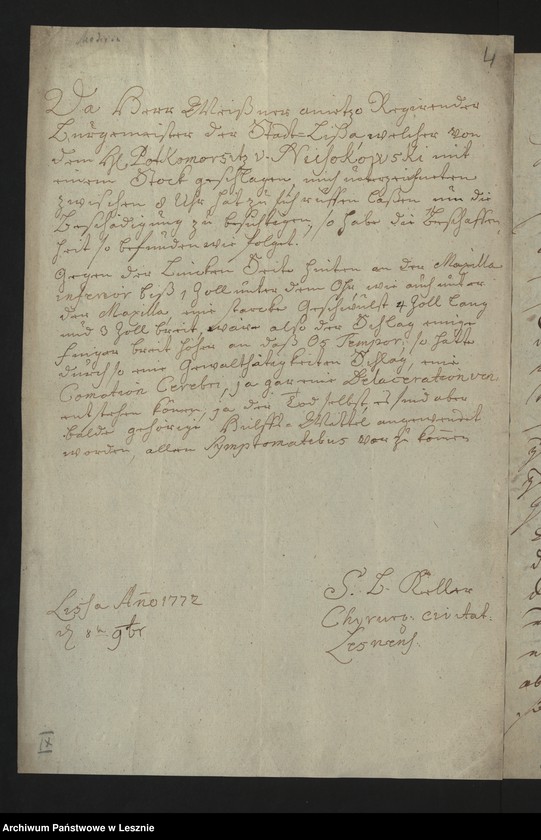 4
Da Herr Meißner anietzo Regirender
Bürgemeister der Stadt Lißa welcher von
dem H. Potkomorsitz v. Nieſokowski mit
einem Stock geschlagen, mich unterzeichneten
zwischen 8 Uhr hat zu sich ruffen laßen um die
Beschädigung zu besichtigen, so habe die Beschaffen-
heit so befunden wie folget.
Gegen der Lincken Seite hinten an der Maxilla
inferior biß 1 Zoll unter dem Ohr, wie auch unter
der Maxilla, eine starcke Geschwulst 4 Zoll lang
und 3 Zoll breit, ware also der Schlag einige
finger breit höher an daß Os Tempor, so hätte
durch so eine Gewalthätigkeiten Schlag, eine
Comotion Cerebri, ja gar eine Delaceration
entstehen können, ja der Tod selbst, es sind aber
balde gehörige Hülfs-Mittel angewendet
worden, allen Symptomatibus vor zu komen
Lißa Año 1772
d 8 9br
S. L. Keller
Chyrurg: civitat:
Lesnens.
IX
Archiwum Państwowe w Lesznie